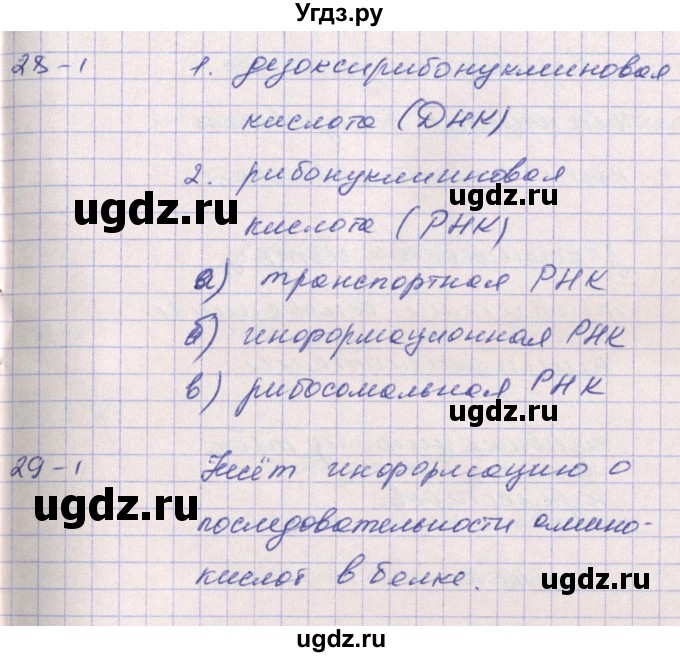 Угдз.ру
28-1 1. дезоксирибонуклиновая
кислота (ДНК)
2. рибонуклииновая
ugdz.ru
ugdz.ru
кислота (РНК)
а) транспортная РНК
б) информационная РНК
в) рибосомальная РНК
ugdz.ru
29-1 Несёт информацию о
ugdz.ru
последовательности амино-
кислот в белке.
ugdz.ru
ugdz.ru